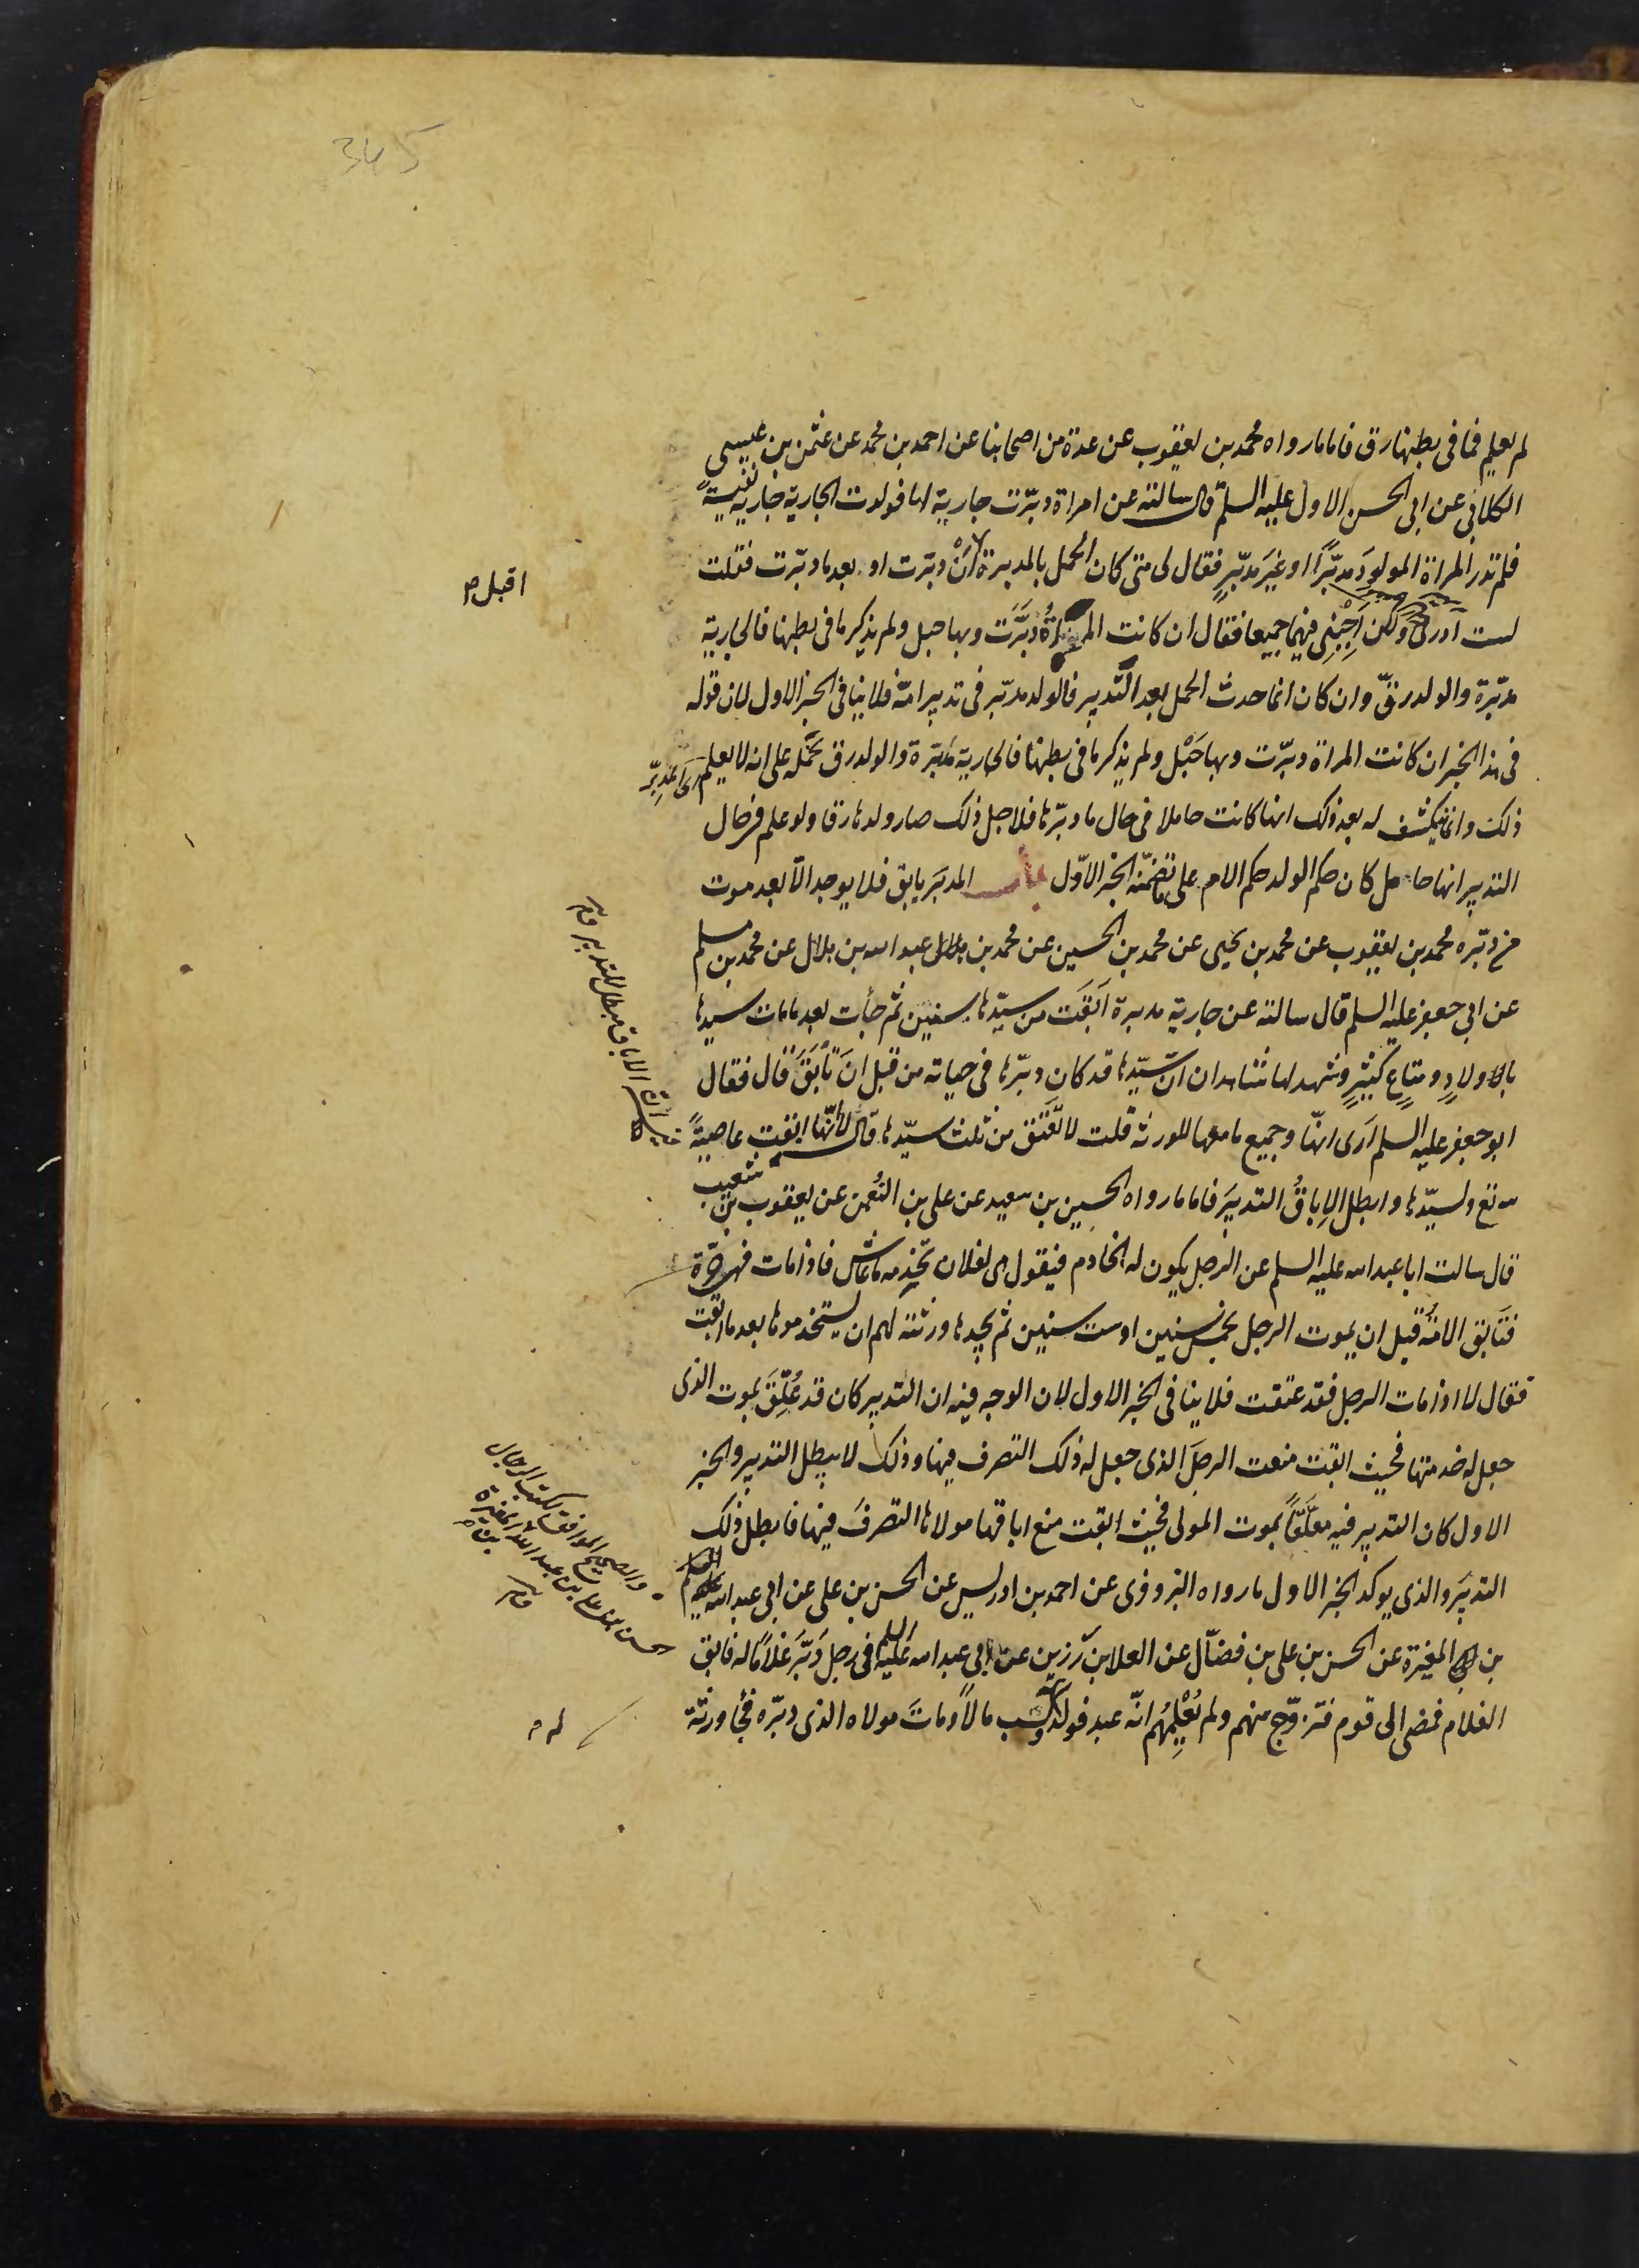 345
لم يعلم فما فى بطنها رق فاما ما رواه محمد بن يعقوب عن عدة من اصحابنا عن احمد بن محمد عن عثمن بن عيسى
الكلابى عن ابى الحسن الاول عليه السلم قال سالته عن امراة دبّرت جارية لها فولدت الجارية جارية نفيسةً
فلم تدر المراة المولودَ مدبّرًا او غيرَ مدبّرٍ فقال لى متى كان الحمل بالمدبرة أَنْ دبّرت او بعد ما دبّرت فقلت
اقبل
لست ادرى ولكن اَجِبْنِى فيهما جميعا فقال ان كانت المراةُ دبَّرَت وبها حبل ولم يذكر ما فى بطنها فالجارية
مدبّرة والولد رقّ وان كان انما حدث الحمل بعد التّدبير فالولد مدبّر فى تدبير امّه فلا ينافى الخبر الاول لان قوله
فى هذا الخبر ان كانت المراة دبّرت وبها حَبْل ولم يذكر ما فى بطنها فالجارية مدبّرة والولد رق نَحمله على انه لا يعلم
ذلك وانما ينكشف له بعد ذلك انها كانت حاملا فى حال ما دبّرها فلاجل ذلك صار ولدها رقا ولو علم فى حال
التدبير انها حامل كان حكم الولد حكم الام على ما تضمّنه الخبر الاوّل باب المدبَر يابق فلا يوجد الّا بعد موت
من دبّره محمد بن يعقوب عن محمد بن يحيى عن محمد بن الحسين عن محمد بن عبد الله بن هلال عن محمد بن مسلم
عن ابي جعفر عليه السلم قال سالته عن جارية مدبرة اَبَقَت من سيّدها سنين ثم جأت بعد ما مات سيدها
باولادٍ ومتاعٍ كثيرٍ وشهد لها شاهدان انّ سيّدها قد كان دبّرها فى حياته من قبل انَ تأبَقَ قال فقال
ابو جعفر عليه السلم ارَى انهّا وجميع ما معها للورثة قلت لا تعتق من ثلث سيّدها قال لا لانّها ابقت عاصيةً
لله تع ولسيّدها وابطل الاِباقُ التدبيرَ فاما ما رواه الحسين بن سعيد عن على بن النُعمن عن يعقوب بن شعيب
قال سالت ابا عبد الله عليه السلم عن الرجل يكون له الخادم فيقول هى لفلان تخدمه ما عاش فاذا مات فهى حرّة
فتَابق الامةُ قبل ان يموت الرجل بخمس سنين او ست سنين ثم يجدها ورثته لهم ان يستخدموها بعد ما ابقت
فقال لا اذا مات الرجل فقد عتقت فلا ينافى الخبر الاول لان الوجه فيه ان التدبير كان قد عُلّقَ بموت الذى
جعل له خدمتها فحيث ابقت منعت الرجلَ الذى جعل له ذلك التصرف فيها وذلك لا يبطل التدبير والخبر
الاول كان التدبير فيه معلّقًا بموت المولى فحيث ابقت منع اباقها مولاها التصرفَ فيها فابطل ذلك
التدبيرَ والذى يوكد الخبر الاول ما رواه البزوفرى عن احمد بن ادريس عن الحسن بن على عن ابى عبد الله
بن المغيرة عن الحسن بن على بن فضّال عن العلا بن رَزين عن ابى عبد الله عليه السلم فى رجل دَبَّرَ غلامًا له فابق
الغلام فمضى الى قوم فتزوّج منهم ولم يُعْلِمْهُم انّه عبد فولد له وكسب مالًا ومات مولاه الذى دبّره فجأ ورثة
الاباق مبطل للتدبير
والصحيح الموافق لكتب الرجال
الحسن بن على بن عبد الله المغيرة